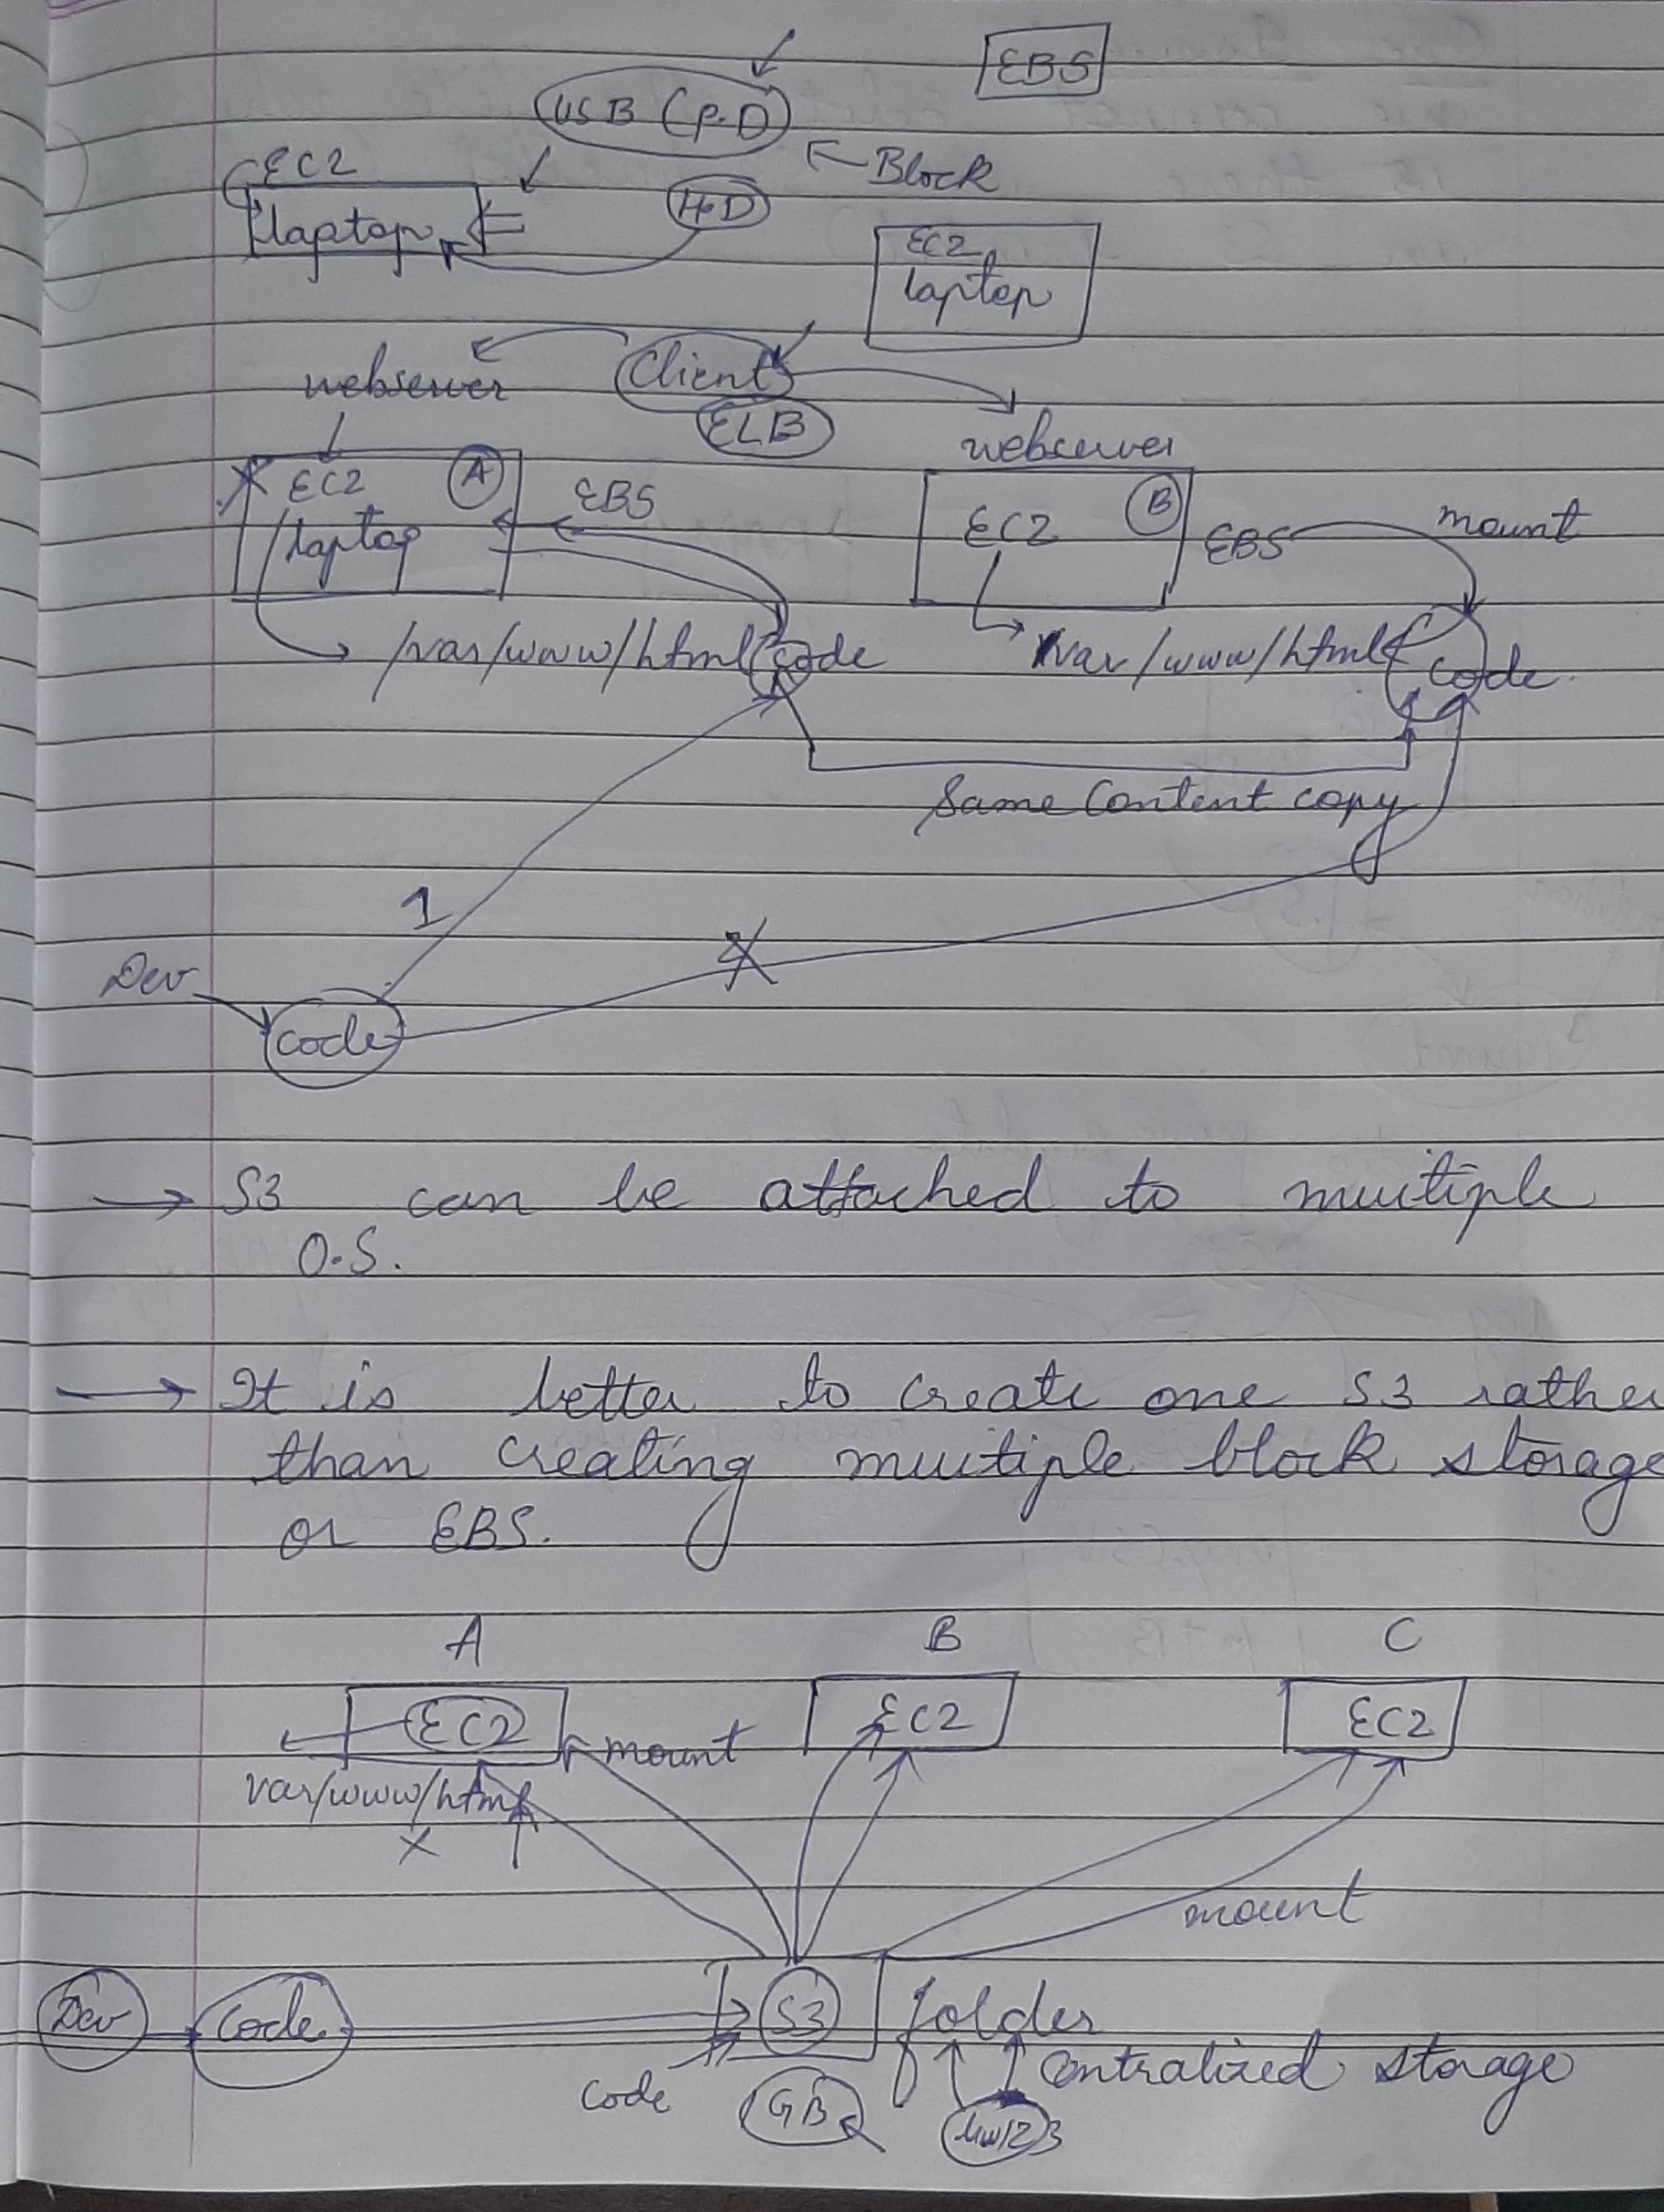 EBS
USB (P.D)
Block
EC2
laptop
H.D
EC2
laptop
Client
webserver
ELB
webserver
EC2 A
laptop
EBS
EC2 B
EBS
mount
/var/www/html/code
/var/www/html/code.
Same Content copy
1
X
Dev
Code
→ S3 can be attached to multiple
O.S.
→ It is better to create one S3 rather
than creating multiple block storage
or EBS.
A B C
EC2 EC2 EC2
mount
var/www/html
X
mount
Dev Code S3 folder
Centralized storage
code
GB